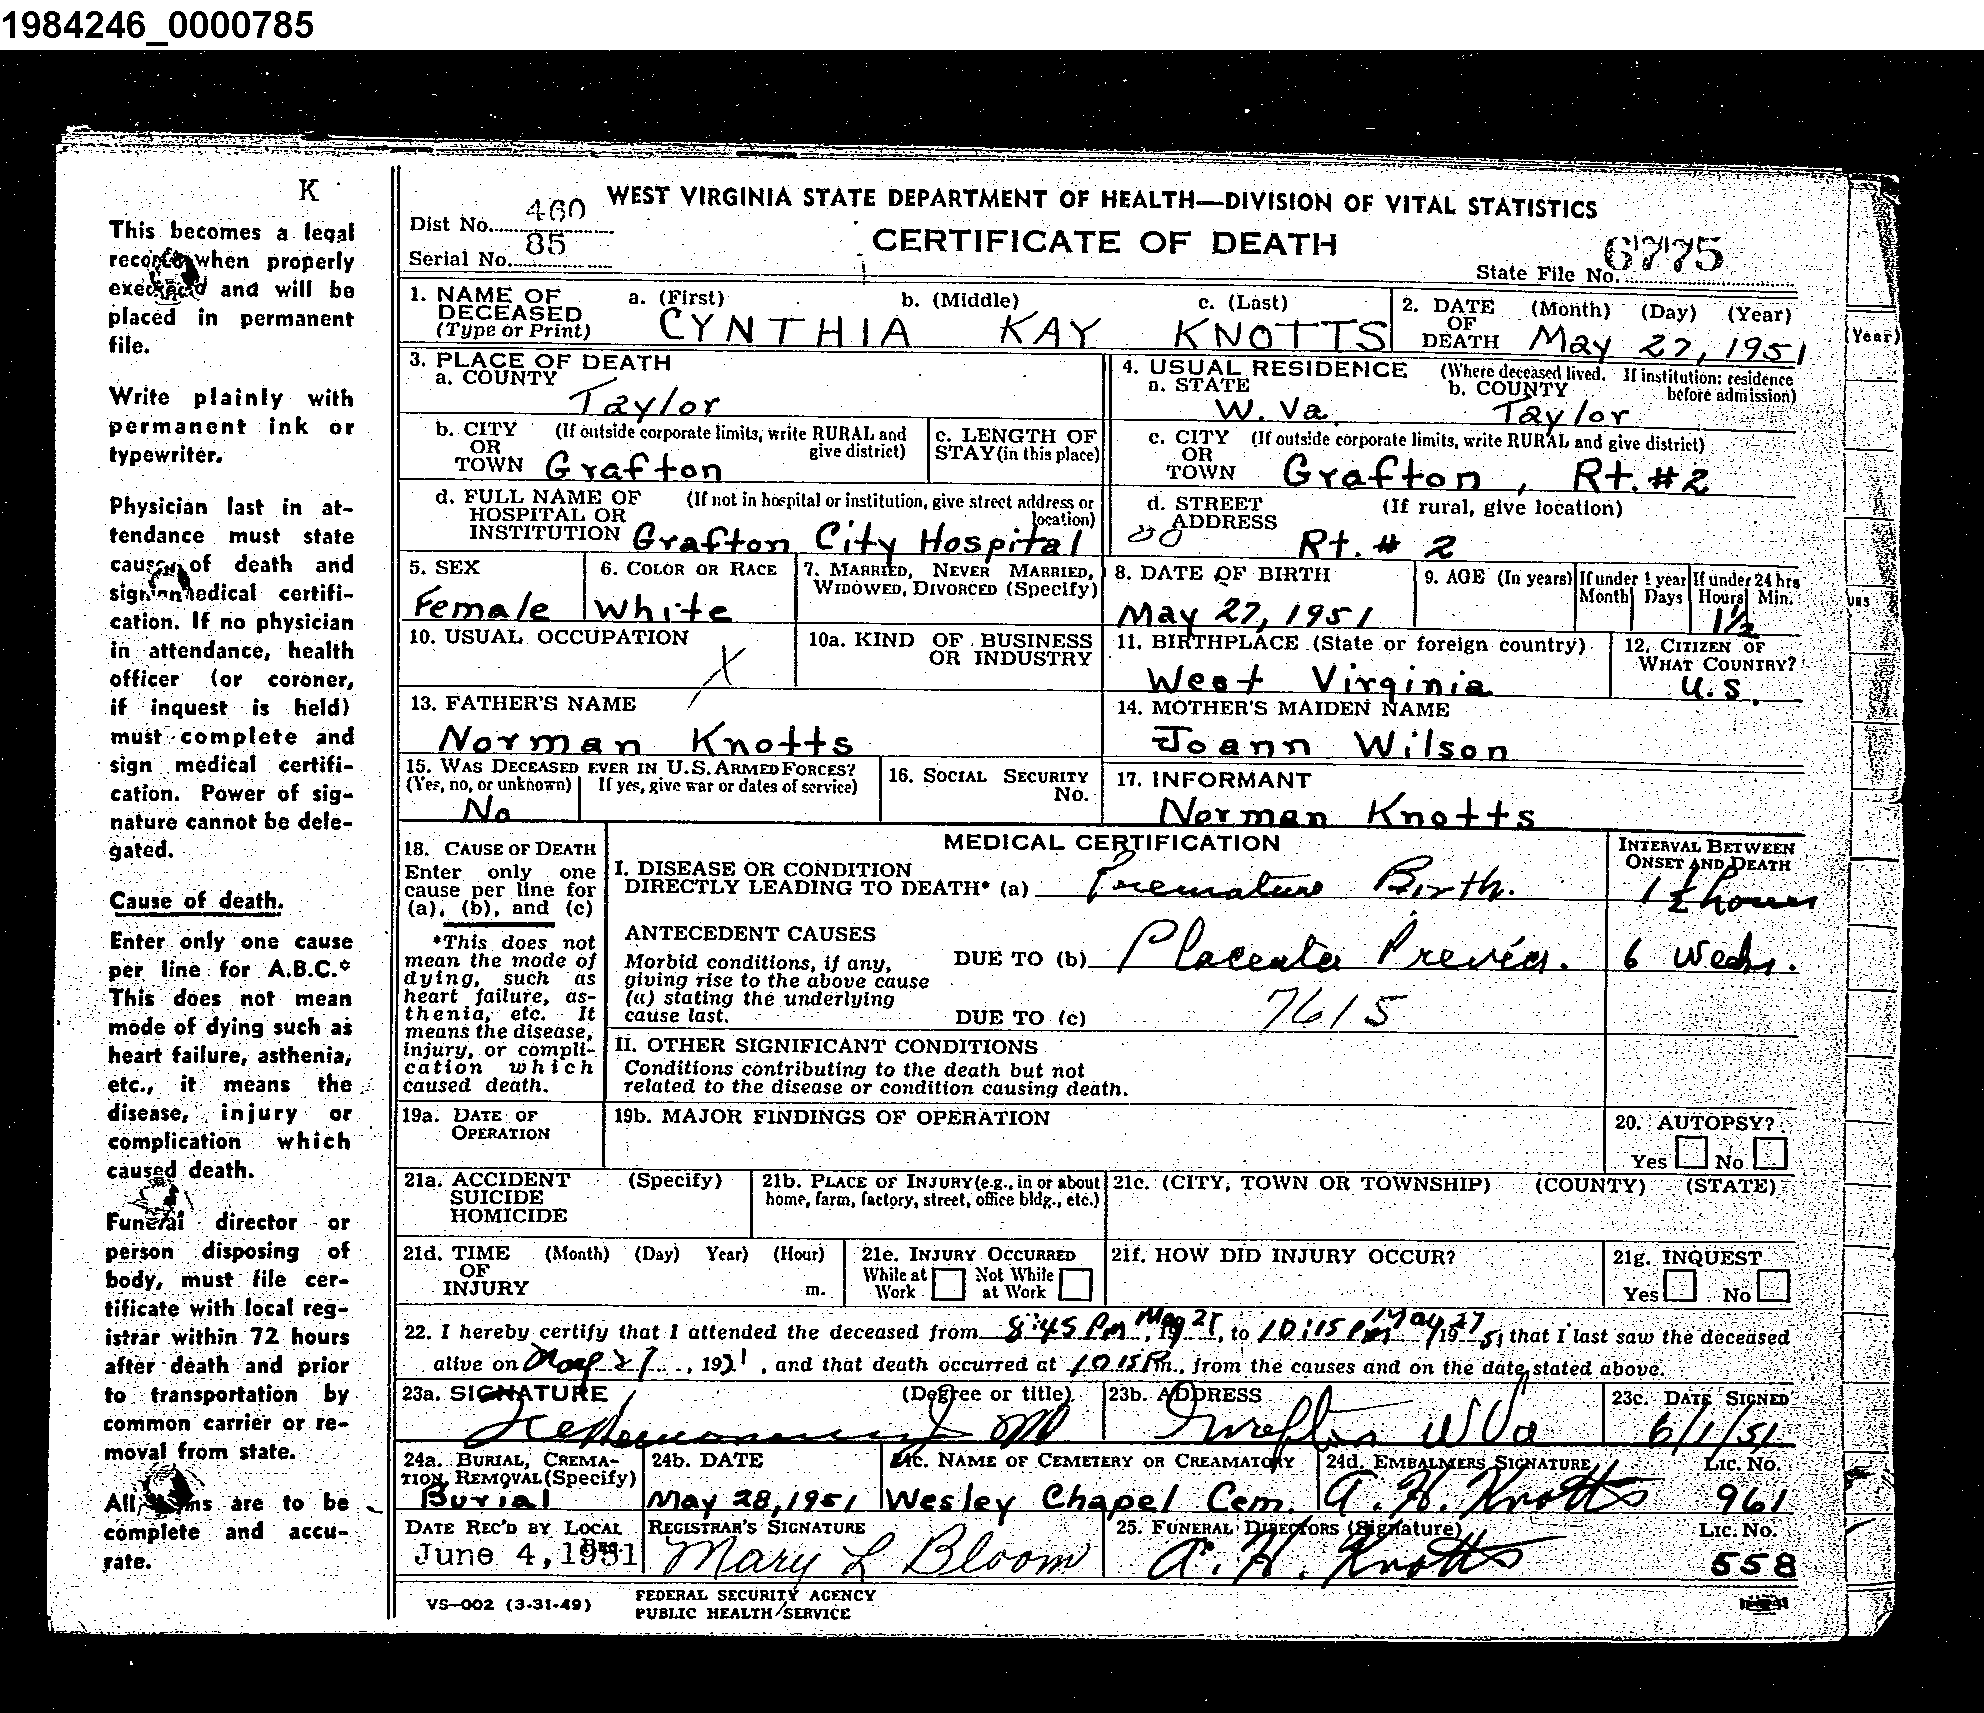 1984246_0000785
K
This becomes a legal
record when properly
executed and will be
placed in permanent
file.
Write plainly with
permanent ink or
typewriter.
Physician last in at-
tendance must state
cause of death and
sign medical certifi-
cation. If no physician
in attendance, health
officer (or coroner,
if inquest is held)
must complete and
sign medical certifi-
cation. Power of sig-
nature cannot be dele-
gated.
Cause of death.
Enter only one cause
per line for A.B.C.*
This does not mean
mode of dying such as
heart failure, asthenia,
etc., it means the
disease, injury or
complication which
caused death.
Funeral director or
person disposing of
body, must file cer-
tificate with local reg-
istrar within 72 hours
after death and prior
to transportation by
common carrier or re-
moval from state.
All items are to be
complete and accu-
rate.
WEST VIRGINIA STATE DEPARTMENT OF HEALTH—DIVISION OF VITAL STATISTICS
Dist No. 460
CERTIFICATE OF DEATH
Serial No. 85
State File No. 6775
1. NAME OF DECEASED (Type or Print) a. (First) b. (Middle) c. (Last)
CYNTHIA KAY KNOTTS
2. DATE OF DEATH (Month) (Day) (Year)
May 27, 1951
(Year)
3. PLACE OF DEATH
a. COUNTY
Taylor
4. USUAL RESIDENCE (Where deceased lived. If institution: residence before admission)
a. STATE b. COUNTY
W. Va. Taylor
b. CITY OR TOWN (If outside corporate limits, write RURAL and give district)
Grafton
c. LENGTH OF STAY (in this place)
c. CITY OR TOWN (If outside corporate limits, write RURAL and give district)
Grafton, Rt. #2
d. FULL NAME OF HOSPITAL OR INSTITUTION (If not in hospital or institution, give street address or location)
Grafton City Hospital
d. STREET ADDRESS (If rural, give location)
Rt. # 2
5. SEX
Female
6. COLOR OR RACE
White
7. MARRIED, NEVER MARRIED, WIDOWED, DIVORCED (Specify)
8. DATE OF BIRTH
May 27, 1951
9. AGE (In years) If under 1 year Month Days If under 24 hrs Hours Min.
1½
10. USUAL OCCUPATION
X
10a. KIND OF BUSINESS OR INDUSTRY
11. BIRTHPLACE (State or foreign country)
West Virginia
12. CITIZEN OF WHAT COUNTRY?
U.S.
13. FATHER'S NAME
Norman Knotts
14. MOTHER'S MAIDEN NAME
Joann Wilson
15. WAS DECEASED EVER IN U.S. ARMED FORCES?
(Yes, no, or unknown) If yes, give war or dates of service)
No
16. SOCIAL SECURITY No.
17. INFORMANT
Norman Knotts
18. CAUSE OF DEATH
Enter only one
cause per line for
(a), (b), and (c)
*This does not
mean the mode of
dying, such as
heart failure, as-
thenia, etc. It
means the disease,
injury, or compli-
cation which
caused death.
MEDICAL CERTIFICATION
INTERVAL BETWEEN ONSET AND DEATH
I. DISEASE OR CONDITION
DIRECTLY LEADING TO DEATH* (a) Premature Birth. 1½ hours
ANTECEDENT CAUSES
Morbid conditions, if any,
giving rise to the above cause
(a) stating the underlying
cause last.
DUE TO (b) Placenta Previa. 6 Weeks.
DUE TO (c) 7615
II. OTHER SIGNIFICANT CONDITIONS
Conditions contributing to the death but not
related to the disease or condition causing death.
19a. DATE OF OPERATION
19b. MAJOR FINDINGS OF OPERATION
20. AUTOPSY?
Yes No
21a. ACCIDENT SUICIDE HOMICIDE (Specify)
21b. PLACE OF INJURY (e.g., in or about home, farm, factory, street, office bldg., etc.)
21c. (CITY, TOWN OR TOWNSHIP) (COUNTY) (STATE)
21d. TIME OF INJURY (Month) (Day) Year) (Hour) m.
21e. INJURY OCCURRED
While at Work Not While at Work
21f. HOW DID INJURY OCCUR?
21g. INQUEST
Yes No
22. I hereby certify that I attended the deceased from 8:45 Pm May 27, 19, to 10:15 Pm May 27 1951, that I last saw the deceased
alive on May 27, 1951, and that death occurred at 10 15 Pm., from the causes and on the date stated above.
23a. SIGNATURE (Degree or title)
MD
23b. ADDRESS
Grafton W Va
23c. DATE SIGNED
6/1/51
24a. BURIAL, CREMA-
TION, REMOVAL (Specify)
Burial
24b. DATE
May 28, 1951
24c. NAME OF CEMETERY OR CREAMATORY
Wesley Chapel Cem.
24d. EMBALMERS SIGNATURE Lic. No.
A. H. Knotts 961
DATE REC'D BY LOCAL REG.
June 4, 1951
REGISTRAR'S SIGNATURE
Mary L Bloom
25. FUNERAL DIRECTORS (Signature) Lic. No.
A. H. Knotts 558
VS—002 (3-31-49)
FEDERAL SECURITY AGENCY
PUBLIC HEALTH SERVICE